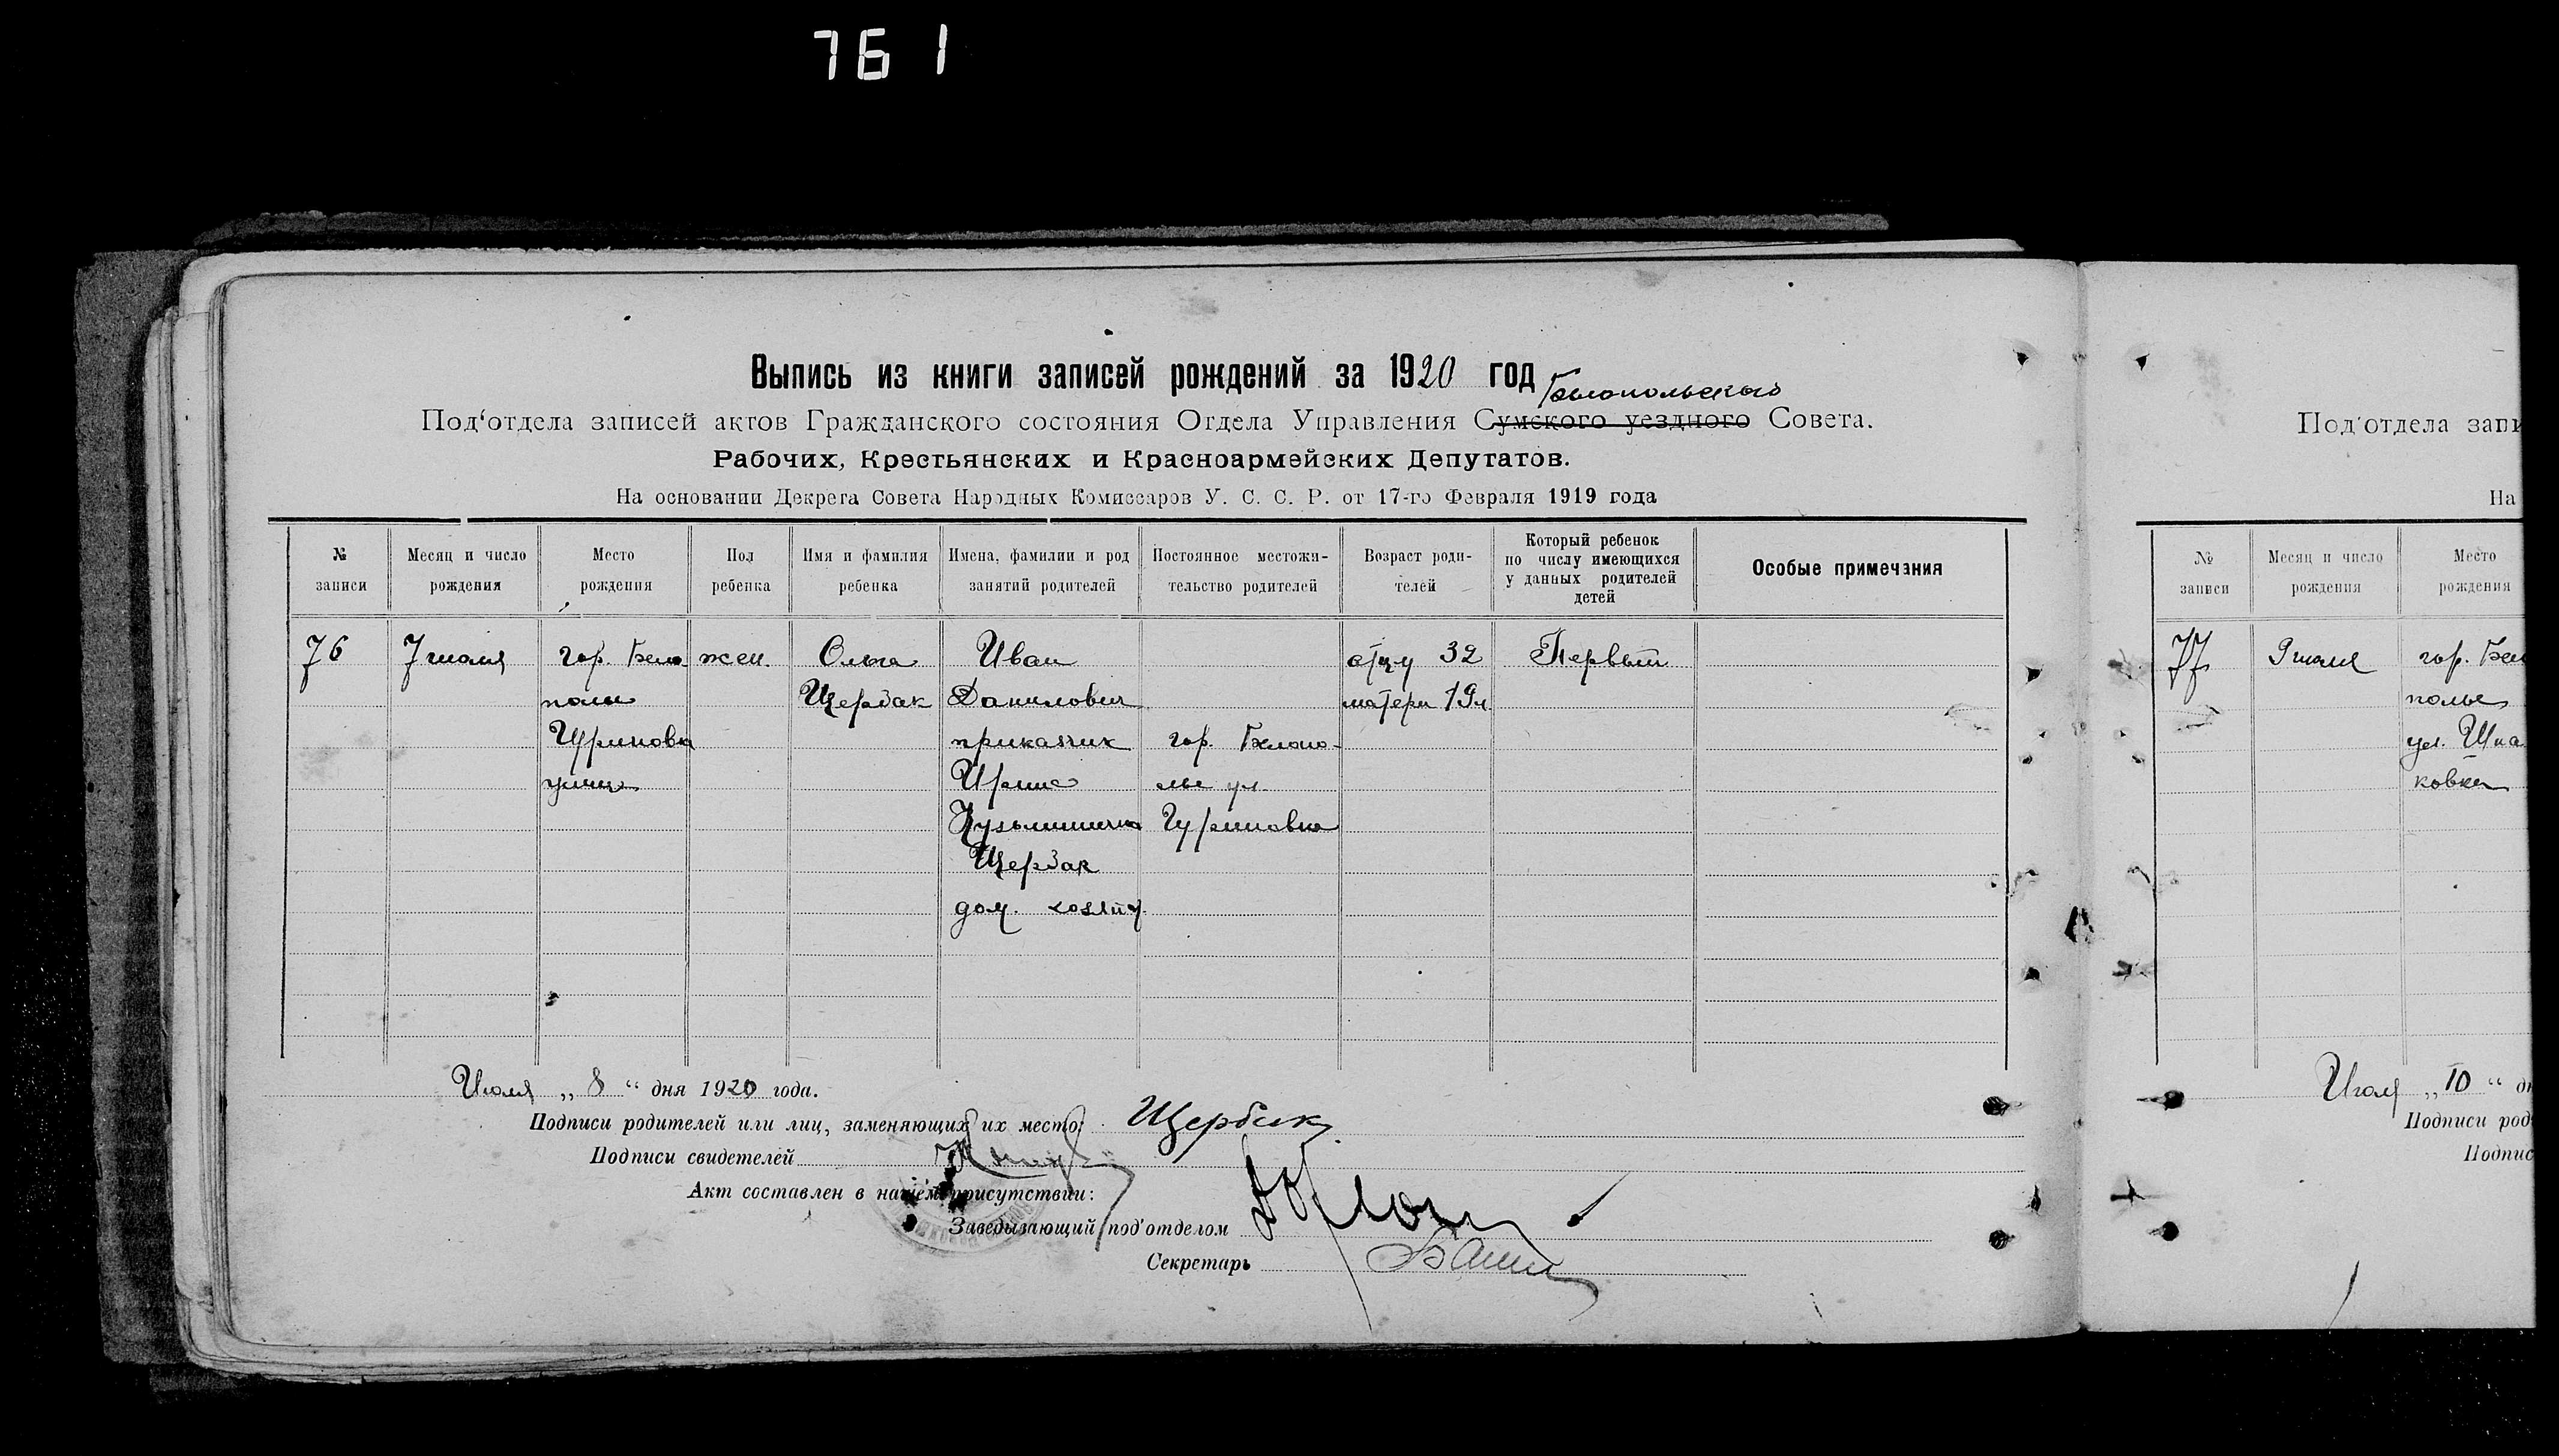 761
Выпись из книги записей рождений за 1920 год
Белопольского
Под'отдела записей актов Гражданского состояния Отдела Управления Сумского уездного Совета.
Рабочих, Крестьянских и Красноармейских Депутатов.
На основании Декрета Совета Народных Комиссаров У. С. С. Р. от 17-го Февраля 1919 года
№ записи
Месяц и число рождения
Место рождения
Пол ребенка
Имя и фамилия ребенка
Имена, фамилии и род занятий родителей
Постоянное местожительство родителей
Возраст родителей
Который ребенок по числу имеющихся у данных родителей детей
Особые примечания
76
7 июля
гор. Бело
полье
улица
жен.
Ольга
Щербак
Иван
Данилович
приказчик
Щербак
гор. Белопо-
лье ул.
Гуриновка
отцу 32
матери 19 л.
Первый
Июля „ 8 “ дня 1920 года.
Подписи родителей или лиц, заменяющих их место:
Щербак
Подписи свидетелей
Акт составлен в нашем присутствии:
Заведывающий под'отделом
Секретарь
Под'отдела запи
На
№ записи
Месяц и число рождения
Место рождения
77
9 июля
гор. Бел
полье
ул. Шпа
ковка
„ 10 “
Подписи род
Подпис